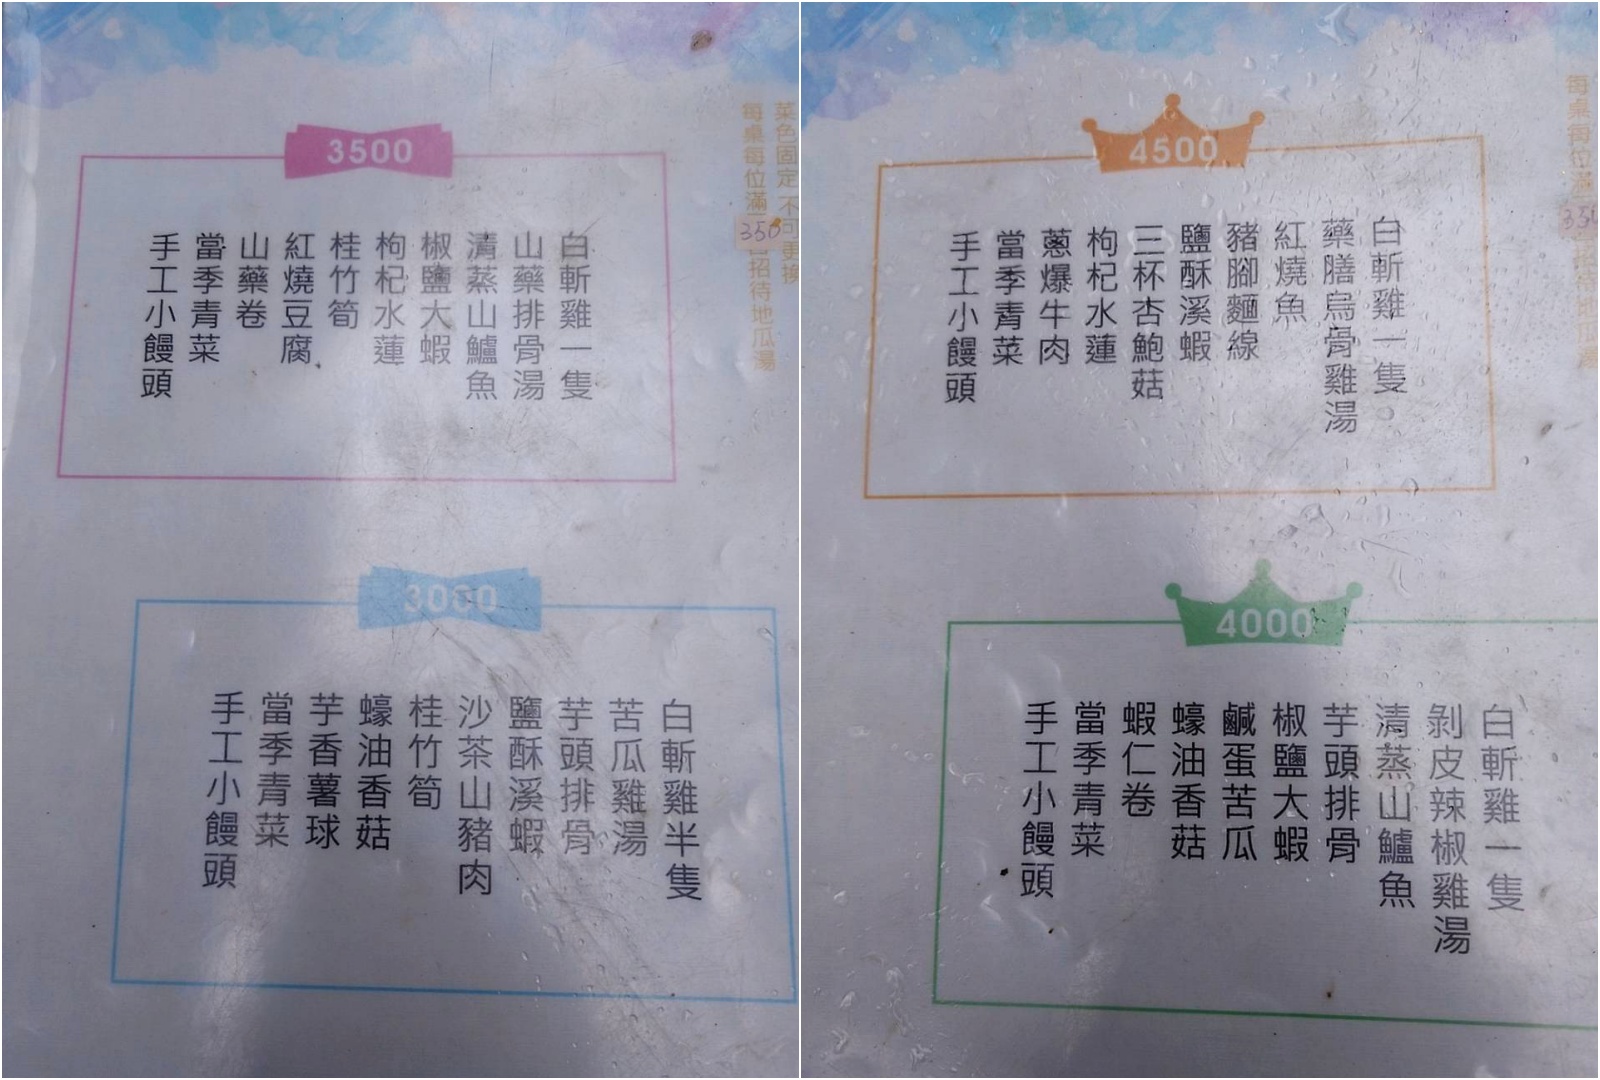 菜色固定 不可更換
每桌每位滿
350
招待地瓜湯
3500
白斬雞一隻
山藥排骨湯
清蒸山鱸魚
椒鹽大蝦
枸杞水蓮
桂竹筍
紅燒豆腐
山藥卷
當季青菜
手工小饅頭
3000
白斬雞半隻
苦瓜雞湯
芋頭排骨
鹽酥溪蝦
沙茶山豬肉
桂竹筍
蠔油香菇
芋香薯球
當季青菜
手工小饅頭
每桌每位滿
350
招待地瓜湯
4500
白斬雞一隻
藥膳烏骨雞湯
紅燒魚
豬腳麵線
鹽酥溪蝦
三杯杏鮑菇
枸杞水蓮
蔥爆牛肉
當季青菜
手工小饅頭
4000
白斬雞一隻
剝皮辣椒雞湯
清蒸山鱸魚
芋頭排骨
椒鹽大蝦
鹹蛋苦瓜
蠔油香菇
蝦仁卷
當季青菜
手工小饅頭